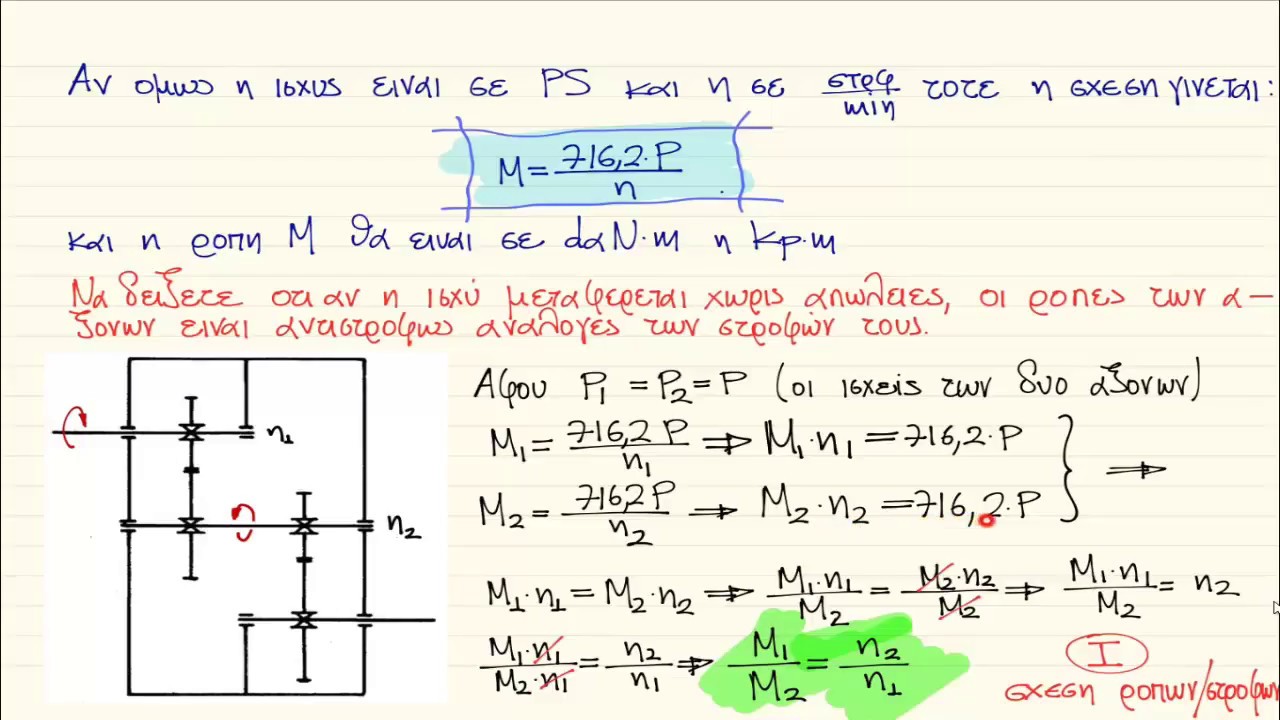 Αν ομως η ισχυς ειναι σε PS και η σε στρφ/min τοτε η σχεση γινεται:
M = 716,2·P/n
και η ροπη M θα ειναι σε daN·m η kp·m
Να δειξετε οτι αν η ισχύ μεταφερεται χωρις απωλειες, οι ροπες των α-
ξονων ειναι αντιστροφως ανάλογες των στροφών τους.
Αφου P₁ = P₂ = P (οι ισχεις των δυο αξονων)
M₁ = 716,2 P/n₁ ⇒ M₁·n₁ = 716,2·P
M₂ = 716,2 P/n₂ ⇒ M₂·n₂ = 716,2·P } ⇒
n₁
n₂
M₁·n₁ = M₂·n₂ ⇒ M₁·n₁/M₂ = M₂·n₂/M₂ ⇒ M₁·n₁/M₂ = n₂
M₁·n₁/M₂·n₁ = n₂/n₁ ⇒ M₁/M₂ = n₂/n₁
I
σχεση ροπων/στροφων